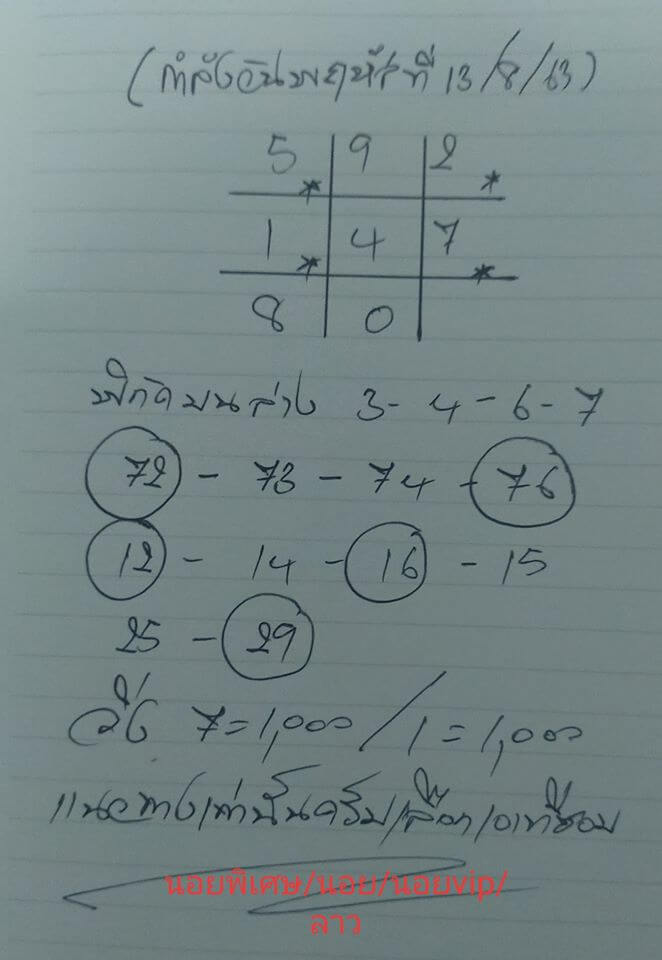 (กำลังวันพฤหัสที่ 13/8/63)
5 9 2
1 4 7
8 0
พิกัดบนล่าง 3-4-6-7
72 - 73 - 74 - 76
12 - 14 - 16 - 15
25 - 29
วิ่ง 7=1,000 / 1=1,000
แนวทางเท่านั้นครับ/เลือกเอาที่ชอบ
นอยพิเศษ/นอย/นอยvip/
ลาว